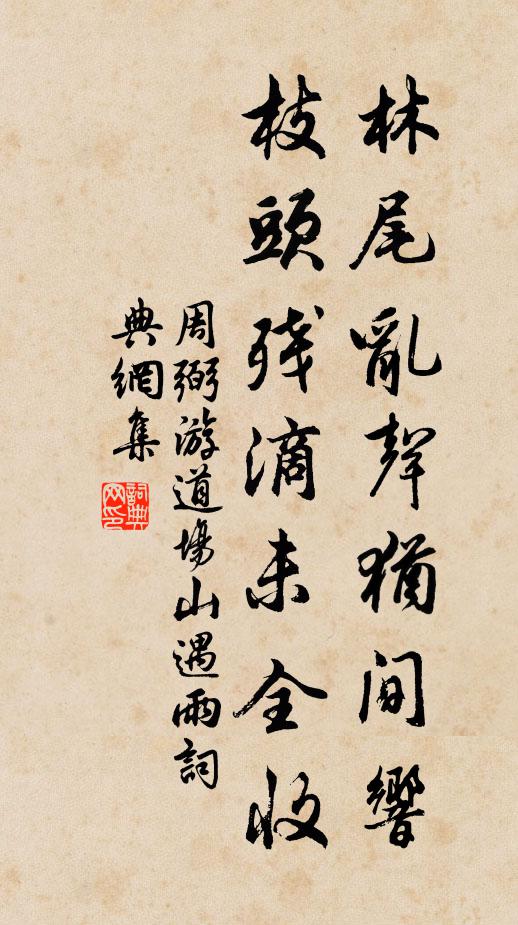 林尾亂聲猶間響
枝頭残滴未全收
周弼游道場山遇雨詞
典網集
詞典
网印